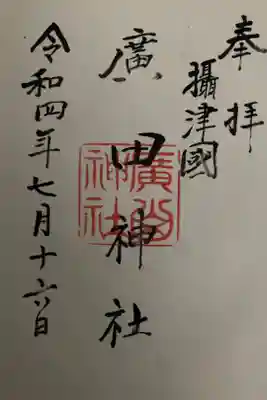 奉拝
攝津國
廣田神社
廣田神社
令和四年七月十六日